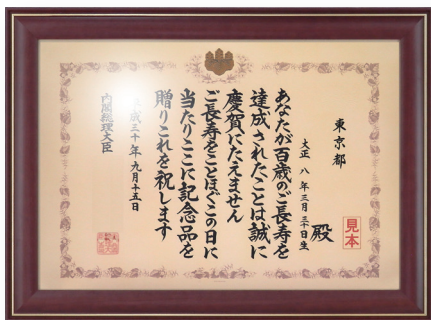 見本
東京都
殿
大正 八 年三月三十日生
あなたが百歳のご長寿を
達成されたことは誠に
慶賀にたえません
ご長寿をことほぐこの日に
当たりここに記念品を
贈りこれを祝します
平成三十年九月十五日
内閣総理大臣